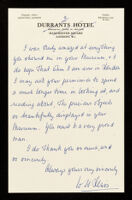 DURRANTS HOTEL
MANCHESTER SQUARE
LONDON W.1
I was truly amazed at everything
you showed me in your Museum. I
do hope that when I am in London
I may ask your permission to spend
a much longer time in looking at, and
reading about the precious objects
so beautifully displayed in your
Museum. You must be a very proud
man.
I do thank you so much, and
so sincerely
Always yours very sincerely